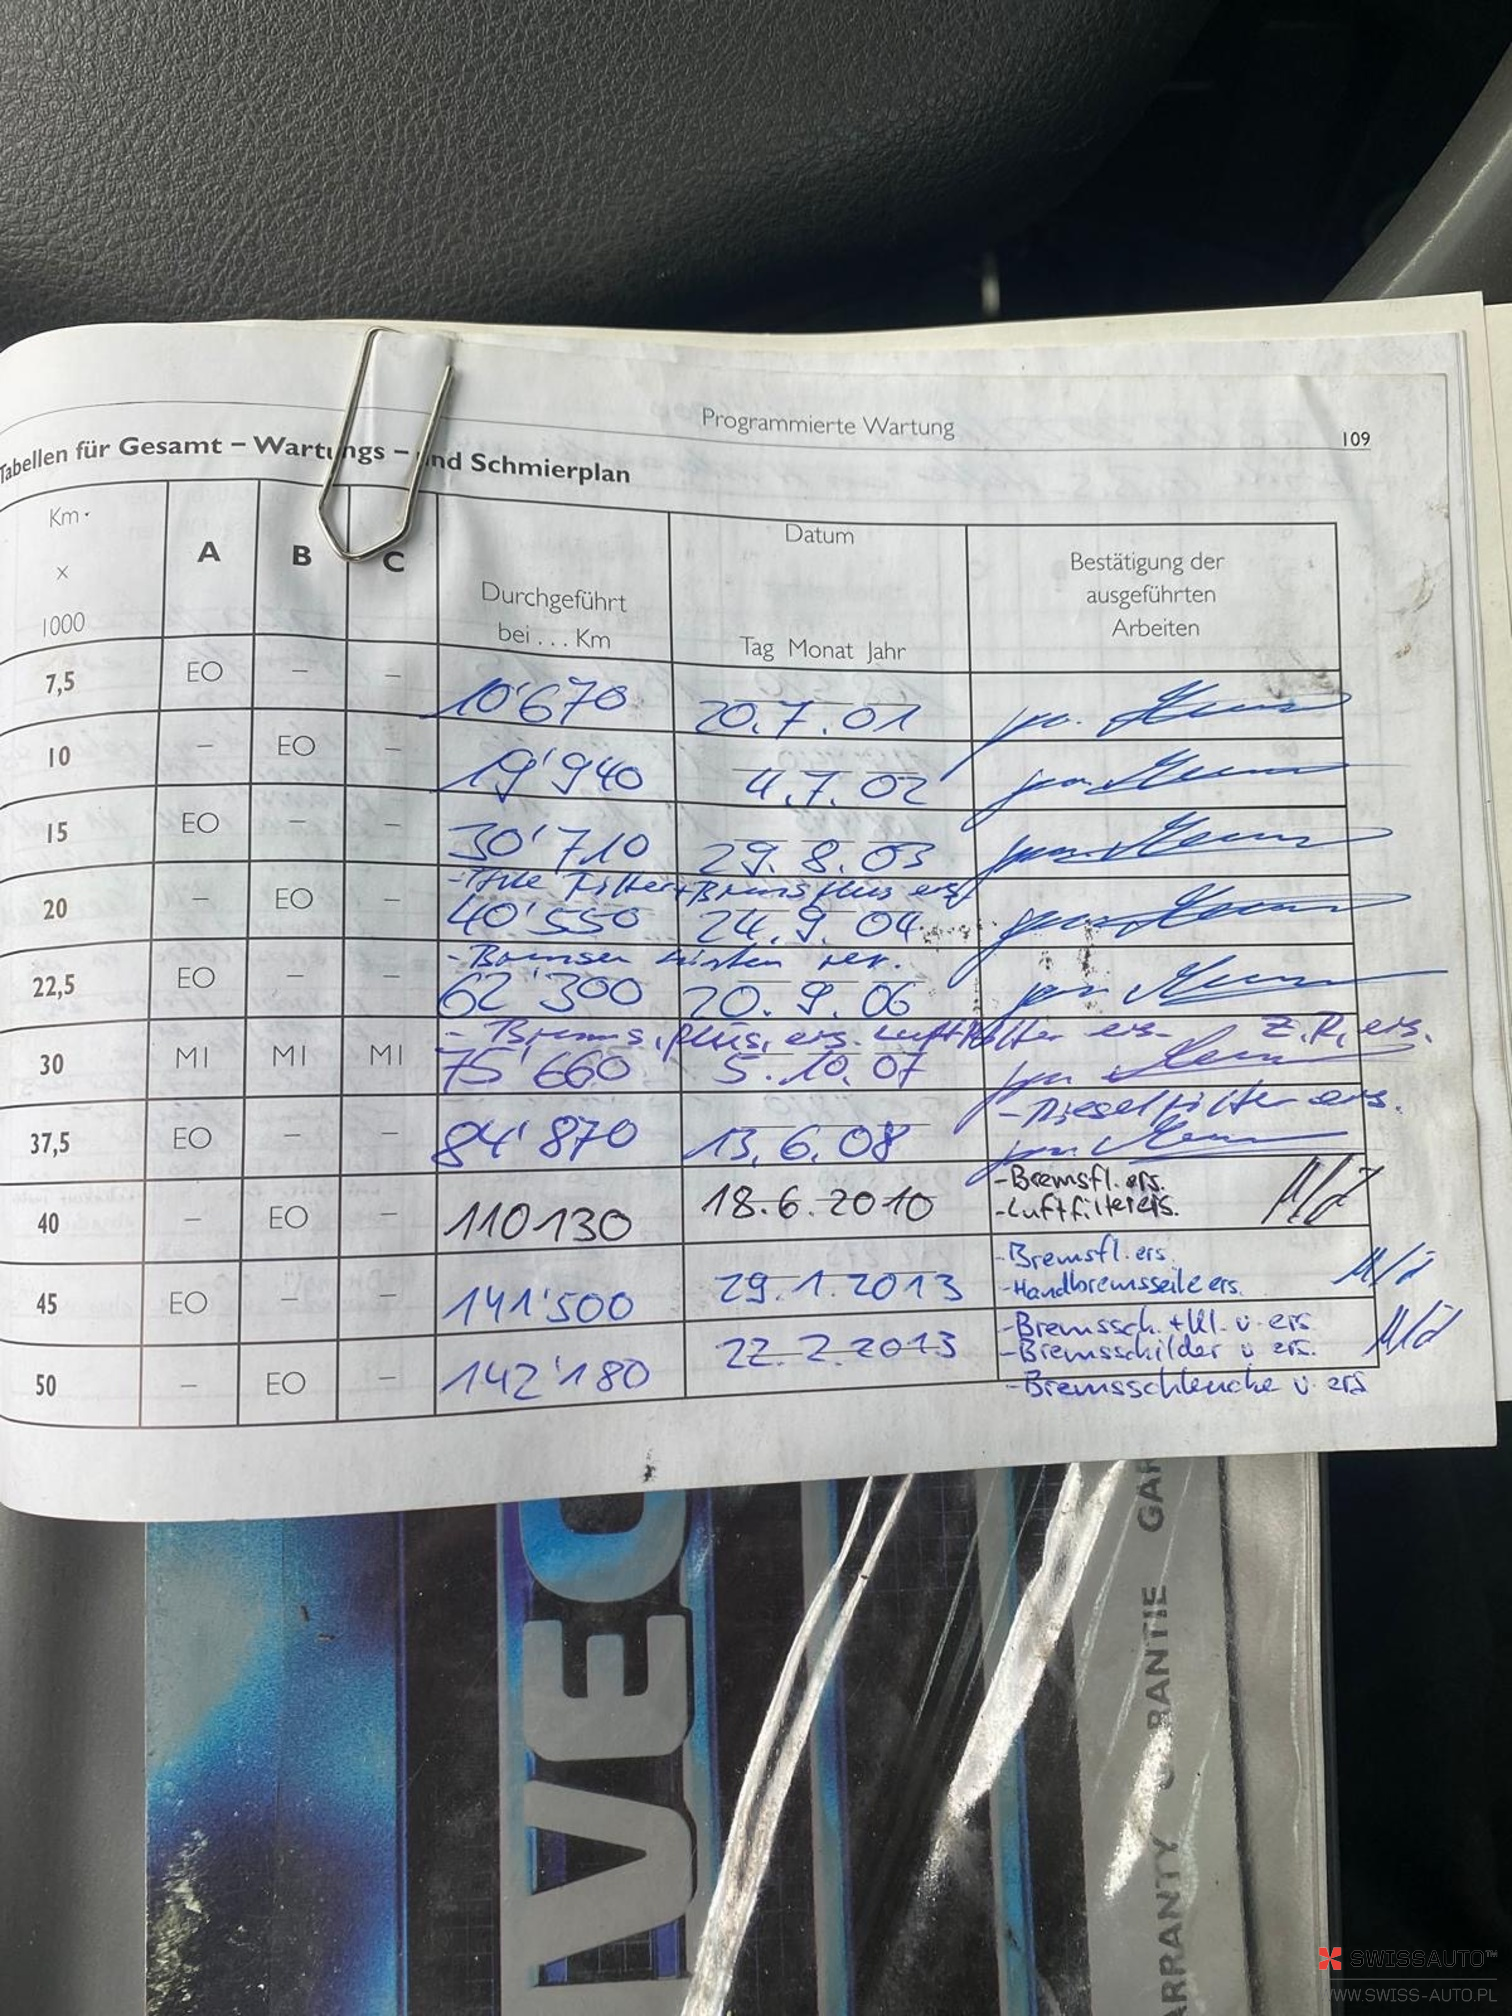 Programmierte Wartung
109
Tabellen für Gesamt – Wartungs – und Schmierplan
Km · x 1000 A B C Durchgeführt bei . . . Km Datum Tag Monat Jahr Bestätigung der ausgeführten Arbeiten
7,5 EO – – 10'670 20.7.01
10 – EO – 19'940 4.7.02
15 EO – – 30'710 29.8.03
20 – EO – 40'550 24.9.04
22,5 EO – – 62'300 20.9.06
- Brems.flüs. ers. Luftfilter ers. Z.R. ers.
30 MI MI MI 75'660 5.10.07
- Dieselfilter ers.
37,5 EO – – 84'870 13.6.08
40 – EO – 110130 18.6.2010 -Bremsfl. ers.
-Luftfilter ers.
45 EO – – 141'500 29.1.2013 -Bremsfl. ers.
-Handbremsseile ers.
50 – EO – 142'180 22.2.2013 -Bremssch. + Kl. v. ers
-Bremsschilder v. ers.
-Bremsschleuche v. ers
IVEC
GARANTIE GAR
WARRANTY
SWISSAUTO™
WWW.SWISS-AUTO.PL